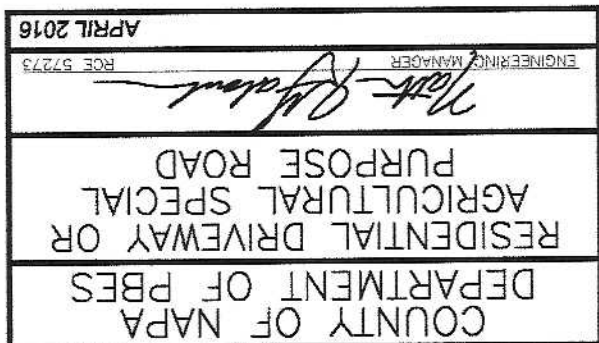 COUNTY OF NAPA
DEPARTMENT OF PBES
RESIDENTIAL DRIVEWAY OR
AGRICULTURAL SPECIAL
PURPOSE ROAD
ENGINEERING MANAGER RCE 57273
APRIL 2016